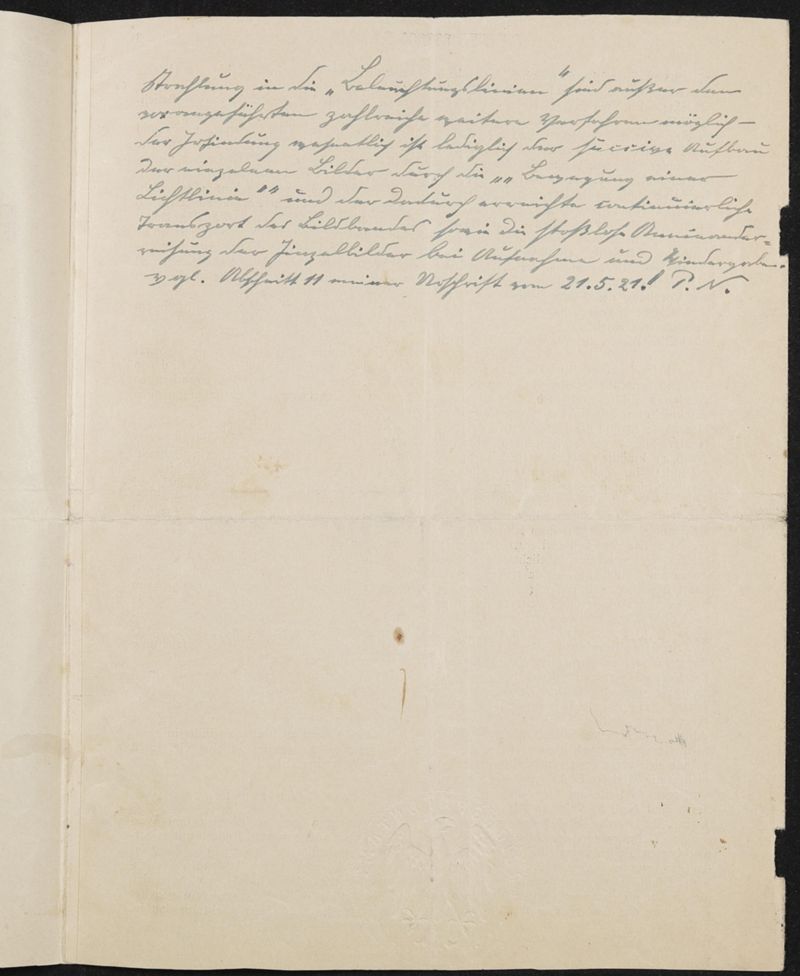 Strahlung in die „Beleuchtungslinien“ sind außer den
vorangeführten zahlreiche weitere Verfahren möglich –
der Erfindung wesentlich ist lediglich der succsive Aufbau
der einzelnen Bilder durch die „„Bewegung einer
Lichtlinie““ und der dadurch erreichte continuierliche
Transport des Bildbandes sowie die stoßlose Aneinander-
reihung der Einzelbilder bei Aufnahme und Wiedergabe.
vgl. Abschnitt 11 meiner Vorschrift vom 21.5.21! P. N.